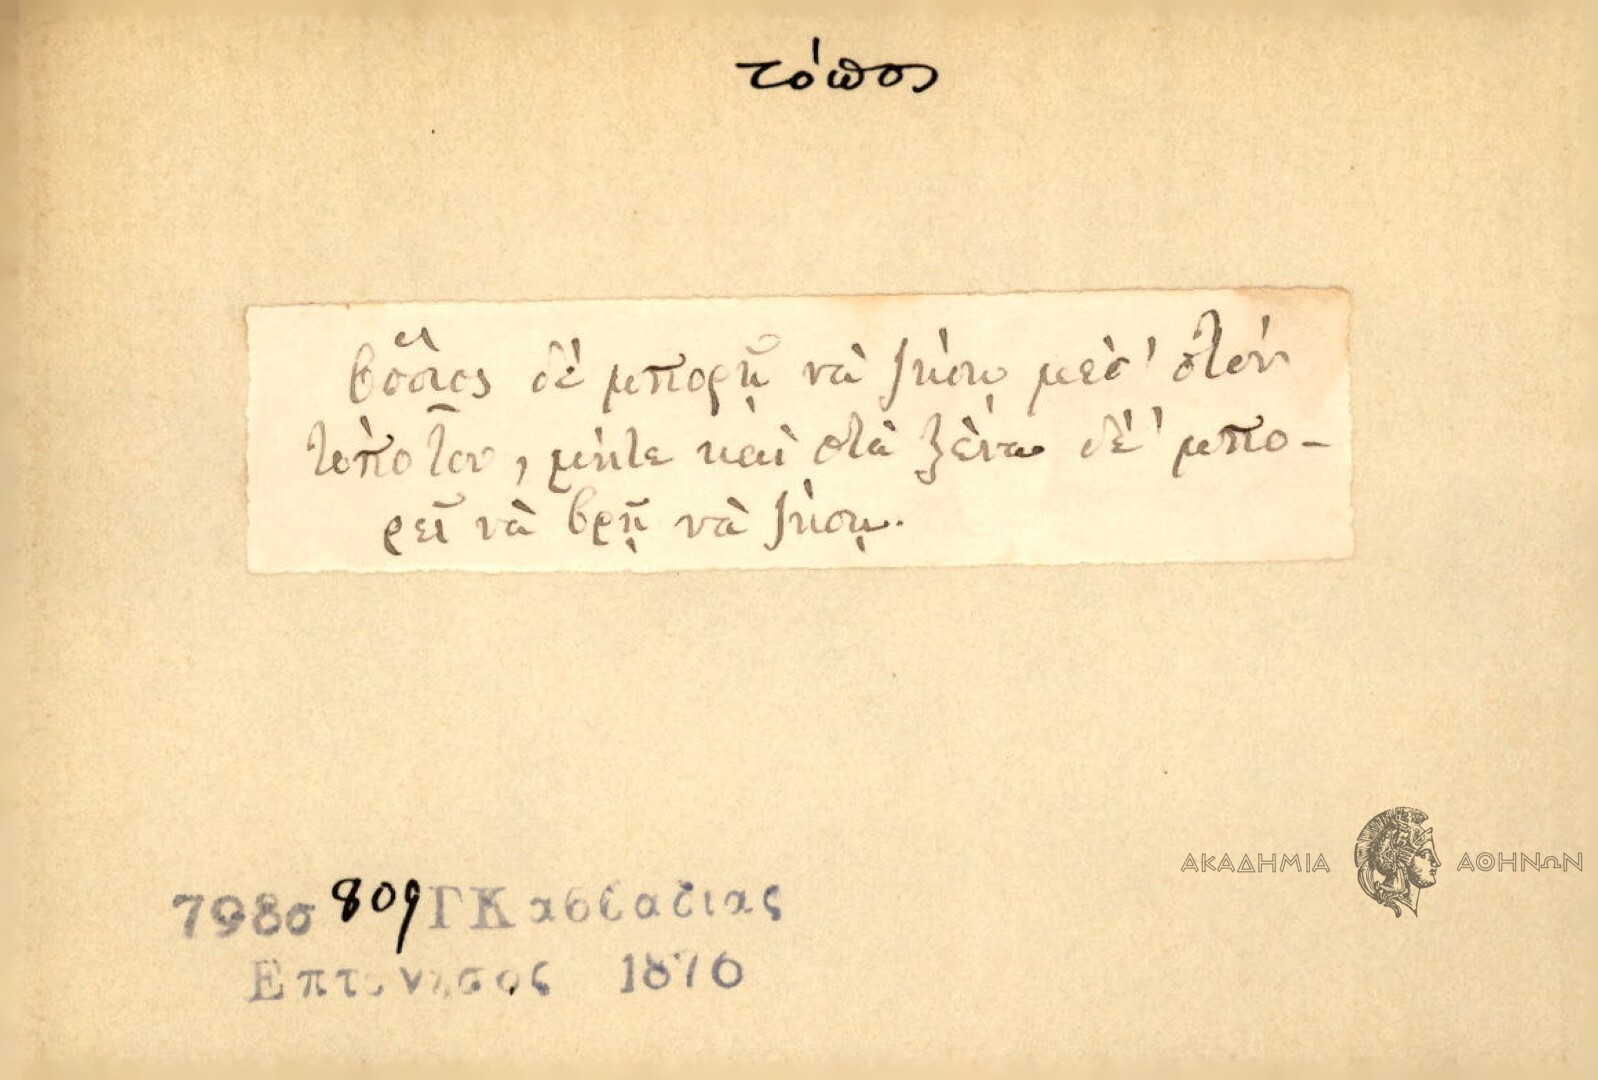 τόπος
ὅποιος δὲ μπορῇ νὰ ζήσῃ μεσ' στὸν
τόπο του, μήτε καὶ στὰ ξένα δὲ' μπο-
ρεῖ νὰ βρῇ νὰ ζήσῃ.
ΑΚΑΔΗΜΙΑ ΑΘΗΝΩΝ
798σ 809 Γ Κασβαζιας
Επτανησος 1876